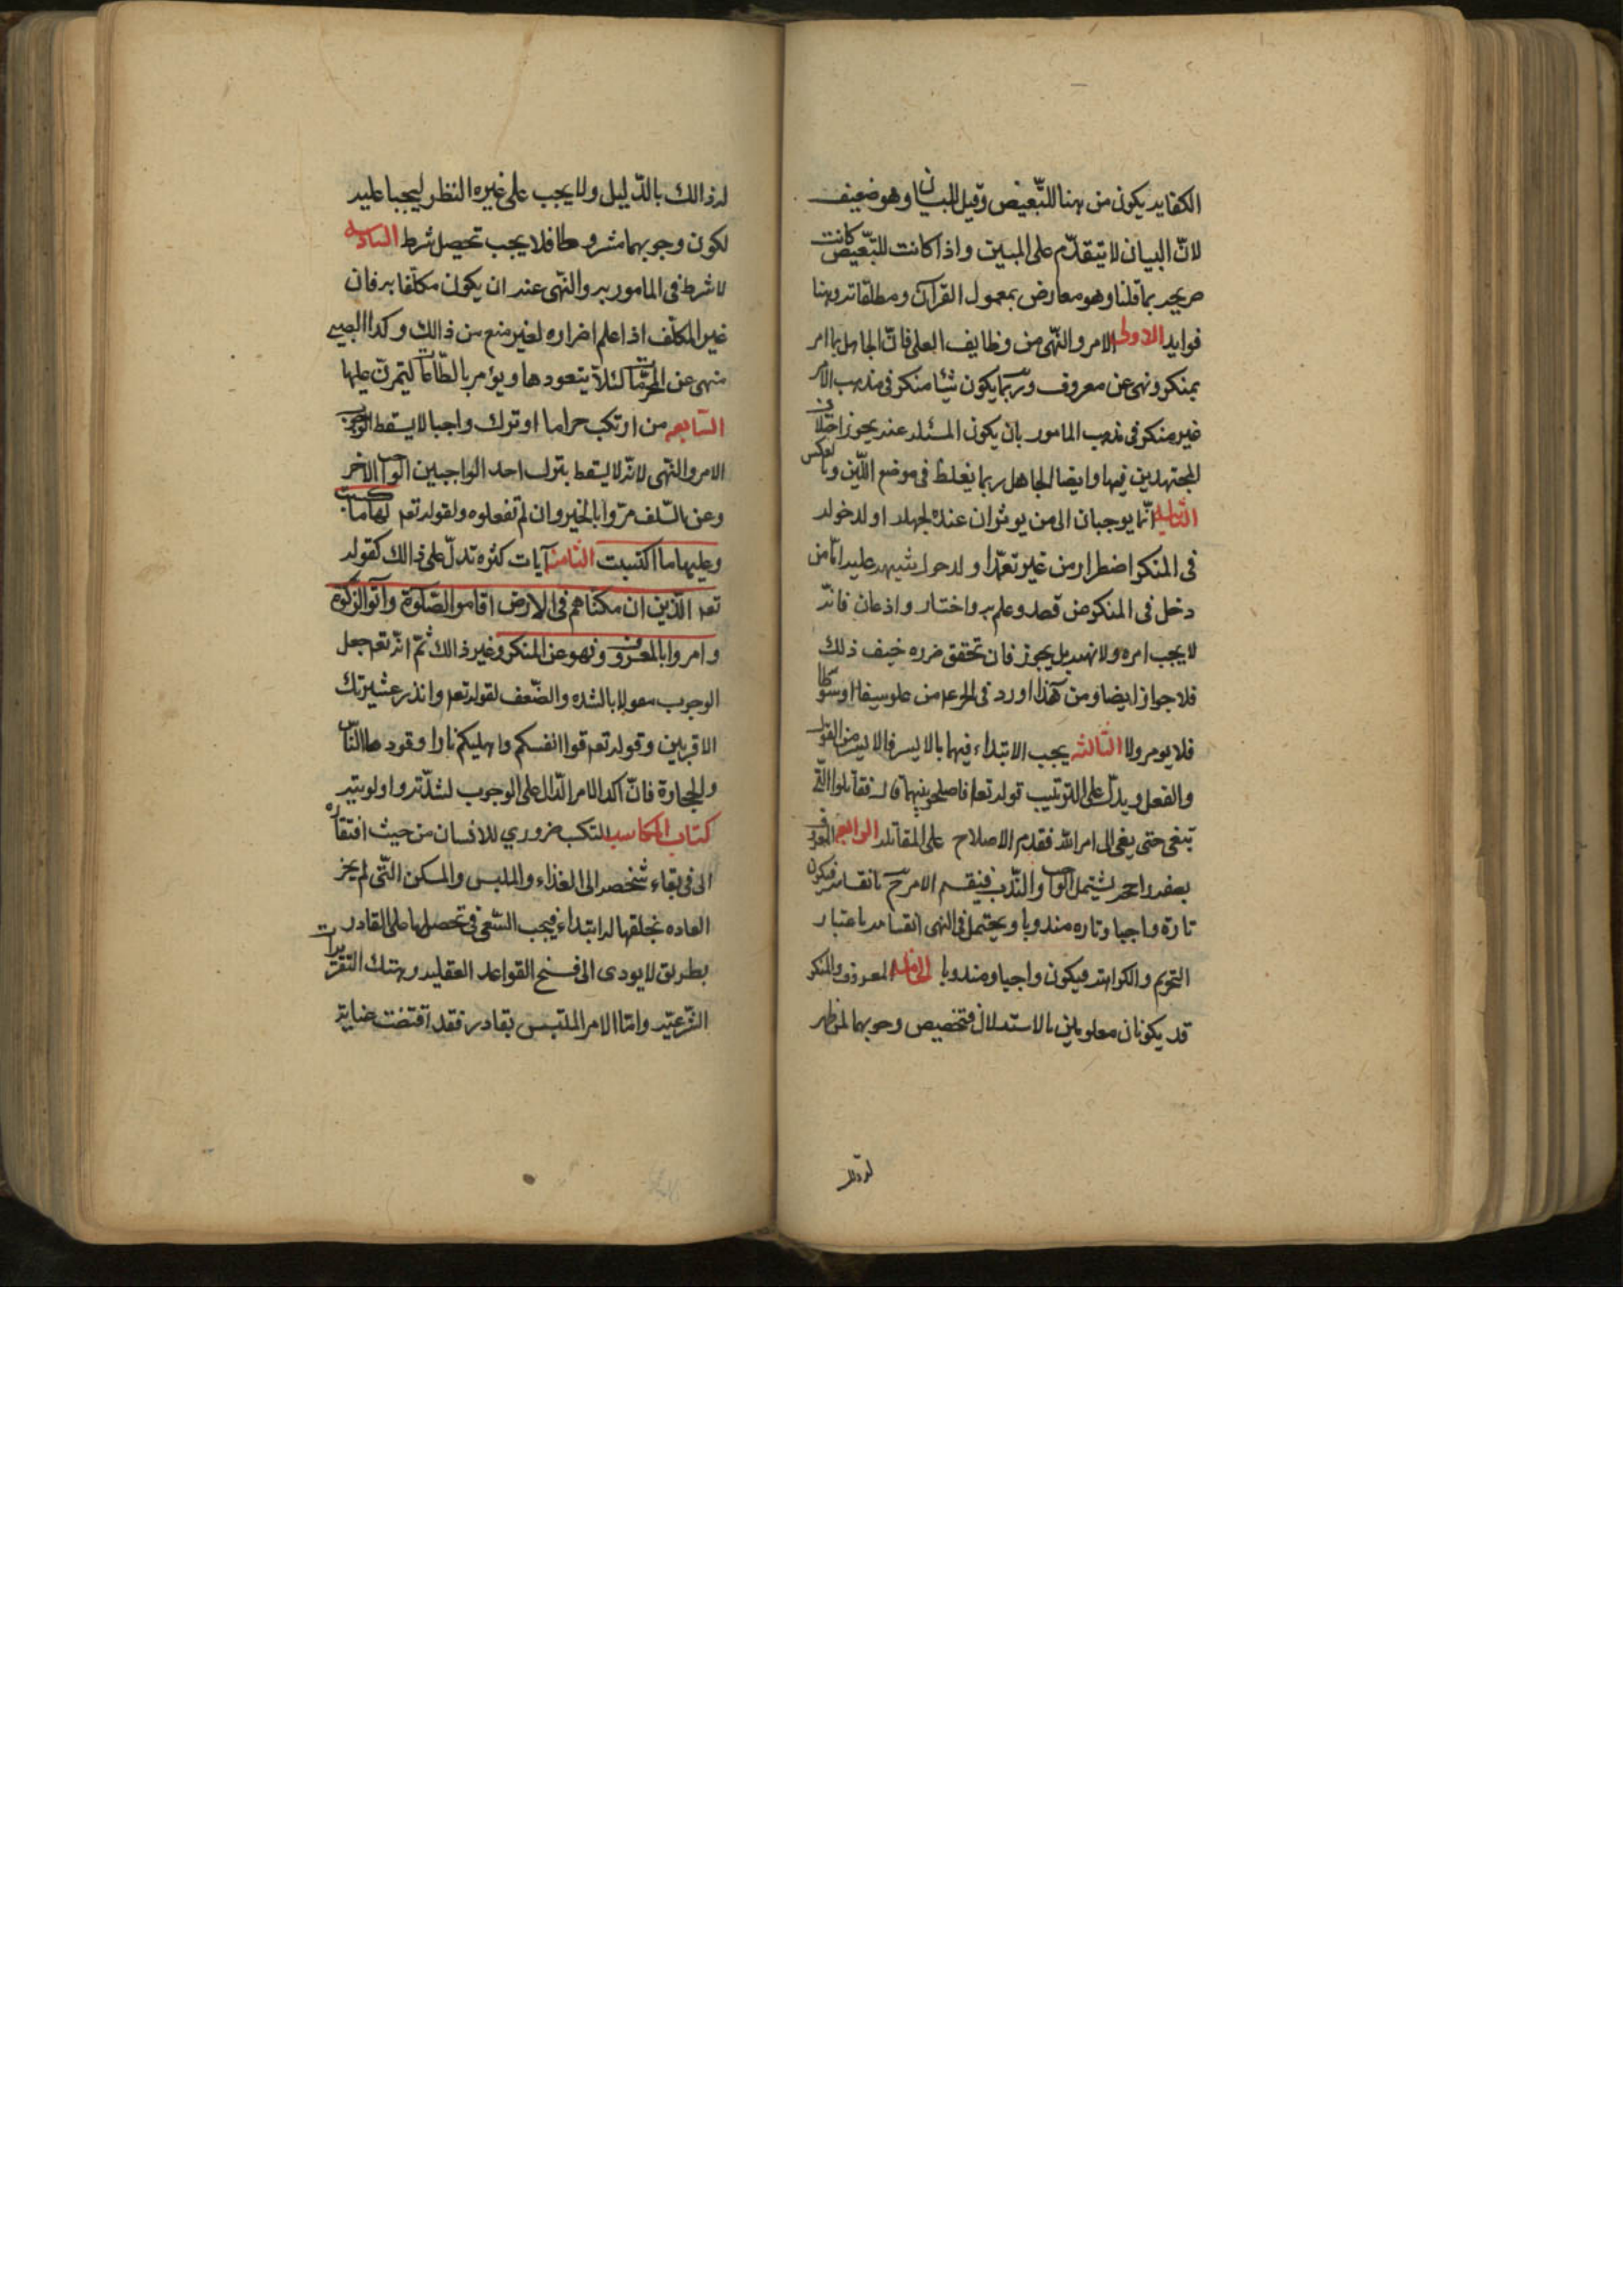 الكفايه يكون من ههنا للتبعيض وقيل للبيان وهو ضعيف
لانّ البيان لا يتقدّم على المبين واذا كانت للتّبعيض كانت
صريحه بما قلنا وهو معارض بمعمول القرآن ومطلقاته وهنا
فوايد الاولى الامر والنّهى من وظايف العلماء فانّ الجاهل ربما امر
بمنكر ونهى عن معروف وربّما يكون شيئا منكر فى مذهب الآمر
غير منكر فى مذهب المامور بان يكون المسئله عنده يجوز اختلاف
المجتهدين فيها وايضا الجاهل ربما يغلظ فى موضع اللّين وبالعكس
الثانيه انّما يوجبان الى من يوثران عنده لجهله او لدخوله
فى المنكر اضطرار من غير تعمّد او لدخول شبهه عليه امّا من
دخل فى المنكر عن قصد وعلم به واختيار واذعان فانّه
لا يجب امره ولا نهيه بل يجوز فان تحقق ضرره خيف ذلك
فلا جواز ايضا ومن هذا ورد فى المرء من علو سيفا او سوطا
فلا يومر ولا الثالثه يجب الابتداء فيهما بالايسر فالايسر من القول
والفعل ويدلّ على الترتيب قوله تعا فاصلحوا بينهما قال فقاتلوا الّتى
تبغى حتى يفى الى امر الله فقدم الاصلاح على المقاتله الرابعه المعروف
بصفه راجحه يشتمل الواجب والنّدب فينقسم الامر ح بانقسامه فيكون
تارة واجبا وتاره مندوبا ويحتمل فى النهى انقسامه باعتبار
التحريم والكراهة فيكون واجبا ومندوبا الخامسه المعروف والمنكر
قد يكونان معلومين بالاستدلال فتخصيص وجوبهما لمن ظهر
له ذالك بالدّليل ولا يجب على غيره النظر ليجبا عليه
لكون وجوبهما مشروطا فلا يجب تحصيل شرط السادسه
لا شرط فى المامور به والنّهى عنه ان يكون مكلّفا به فان
غير المكلّف اذا علم اضراره لغير منع من ذالك وكذا الصبى
منهى عن المحرّمات لئلّا يتعودها ويؤمر بالطّاعات ليتمرّن عليها
السّابعه من ارتكب حراما او ترك واجبا لا يسقط الوجوب
الامر والنّهى لانّه لا يسقط بترك احد الواجبين الواجب الاخر
وعن السّلف مروا بالخير وان لم تفعلوه ولقوله تعـ لها ما كسبت
وعليها ما اكتسبت الثامنه آيات كثره تدلّ على ذالك كقوله
تعـ الّذين ان مكنّاهم فى الارض اقاموا الصّلوة وآتوا الزكوة
وامروا بالمعروف ونهو عن المنكر وغير ذالك ثمّ انّه تعـ جعل
الوجوب معولا بالشده والضّعف لقوله تعـ وانذر عشيرتك
الاقربين وقوله تعـ قوا انفسكم واهليكم نارا وقودها النّاس
والحجارة فانّ اكد الامر الدّال على الوجوب لشدّته واولويته
كتاب المكاسب التكسب ضرورى للانسان من حيث افتقاره
الى فى بقاء شخصه الى الغذاء والملبس والمسكن الّتى لم يجز
العاده بخلقها له ابتداء فيجب السّعى فى تحصيلها على القادر
بطريق لا يودى الى فسخ القواعد العقليه وهتك التقريرات
الشّرعيّه وامّا الامر الملتبس بقادر فقد اقتضت عناية